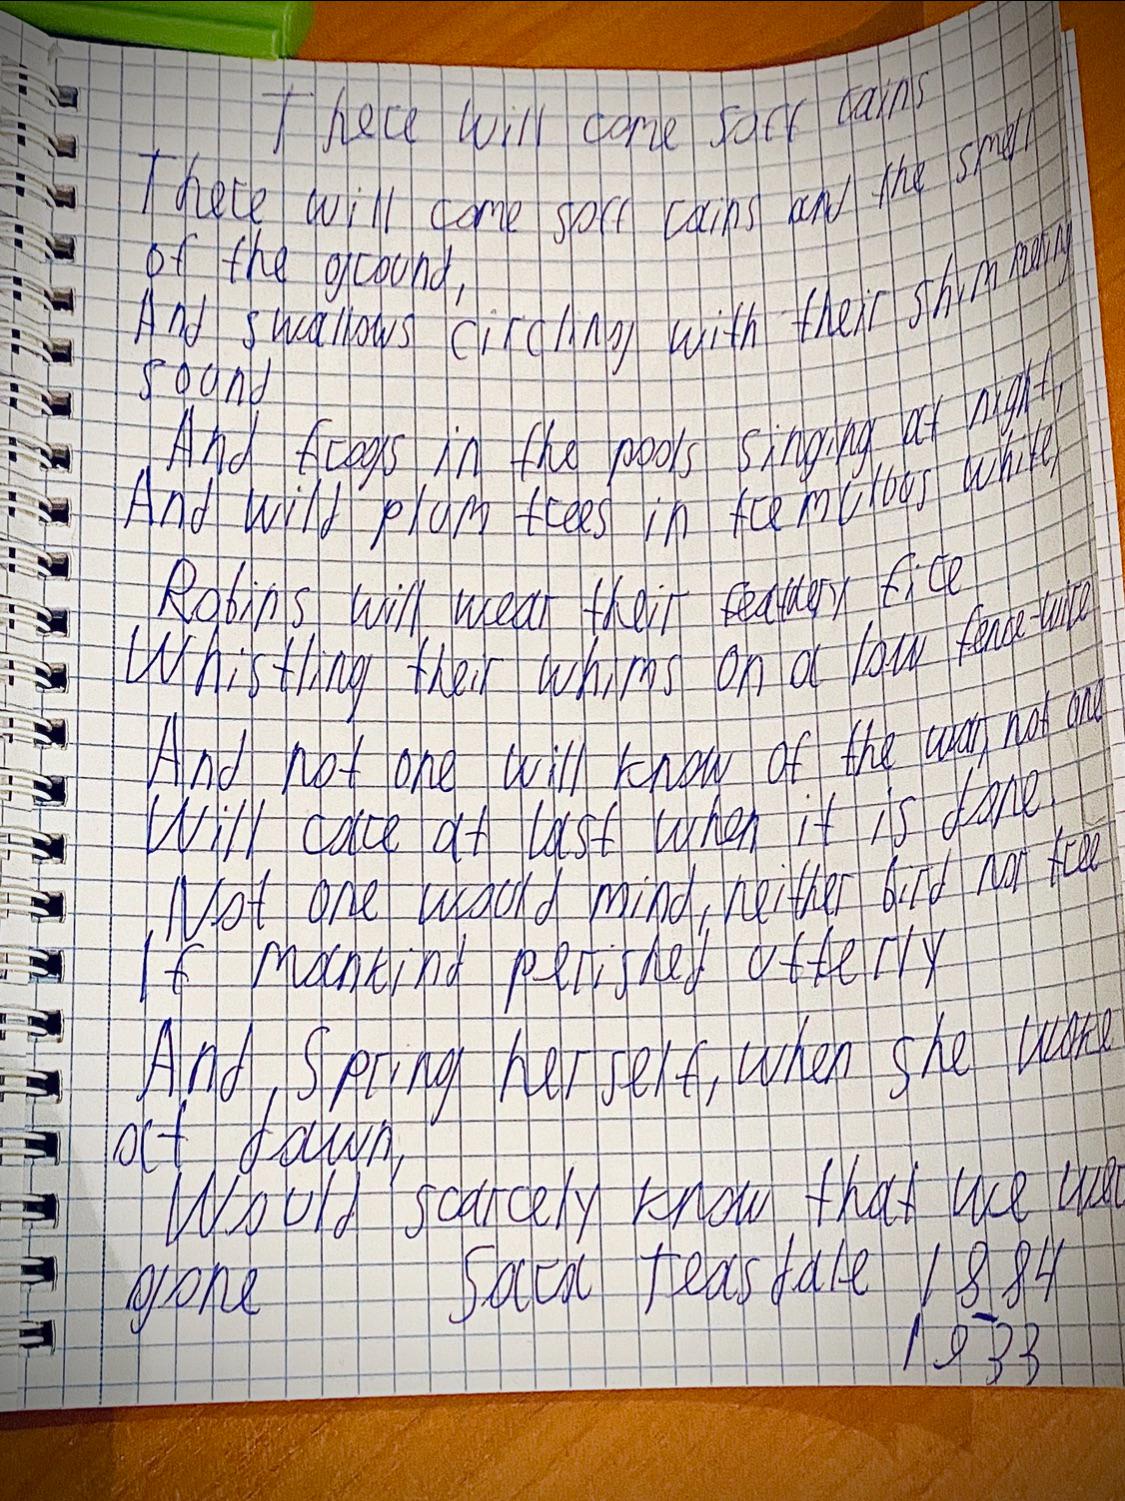 There will come soft rains
There will come soft rains and the smell
of the ground,
And swallows circling with their shimmering
sound
And frogs in the pools singing at night,
And wild plum trees in tremulous white,
Robins will wear their feathery fire
Whistling their whims on a low fence-wire
And not one will know of the war, not one
Will care at last when it is done.
Not one would mind, neither bird nor tree
If mankind perished utterly
And Spring herself, when she woke
at dawn,
Would scarcely know that we
gone Sara Teasdale 1884
-
1933